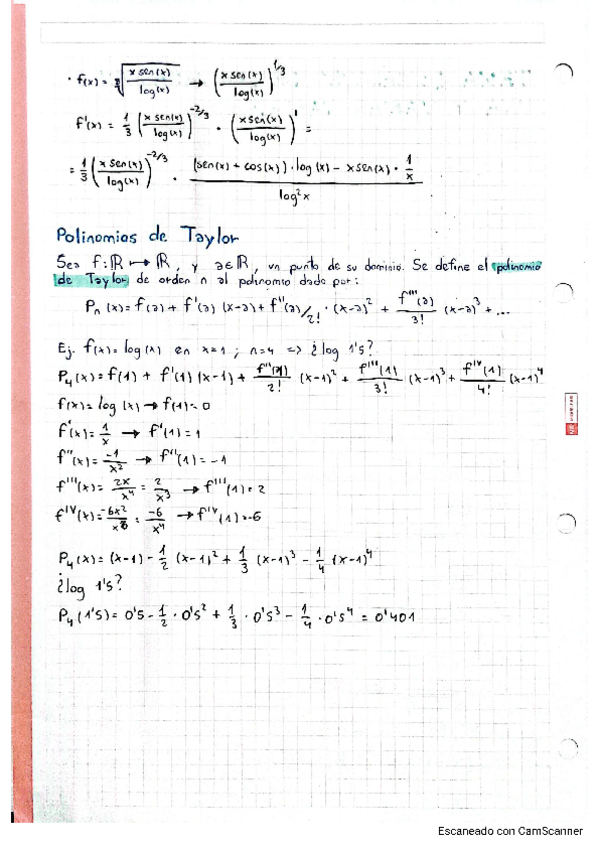 · f(x) = ∛(x sen(x) / log(x)) → (x sen(x) / log(x))^1/3
f'(x) = 1/3 (x sen(x) / log(x))^-2/3 · (x sen(x) / log(x))' =
= 1/3 (x sen(x) / log(x))^-2/3 · (sen(x) + cos(x)) · log(x) - x sen(x) · 1/x / log²x
Polinomios de Taylor
Sea f: ℝ ↦ ℝ, y a∈ℝ, un punto de su dominio. Se define el polinomio
de Taylor de orden n al polinomio dado por:
Pn(x) = f(a) + f'(a) (x-a) + f''(a)/2! · (x-a)² + f'''(a)/3! (x-a)³ + ...
Ej. f(x) = log(x) en x=1 ; n=4 => ¿log 1'5?
P4(x) = f(1) + f'(1) (x-1) + f''(1)/2! (x-1)² + f'''(1)/3! (x-1)³ + f'^v(1)/4! (x-1)⁴
f(x) = log(x) → f(1) = 0
f'(x) = 1/x → f'(1) = 1
f''(x) = -1/x² → f''(1) = -1
f'''(x) = 2x/x⁴ = 2/x³ → f'''(1) = 2
f^IV(x) = -6x²/x⁶ = -6/x⁴ → f^IV(1) = -6
P4(x) = (x-1) - 1/2 (x-1)² + 1/3 (x-1)³ - 1/4 (x-1)⁴
¿log 1'5?
P4(1'5) = 0'5 - 1/2 · 0'5² + 1/3 · 0'5³ - 1/4 · 0'5⁴ = 0'401
Escaneado con CamScanner